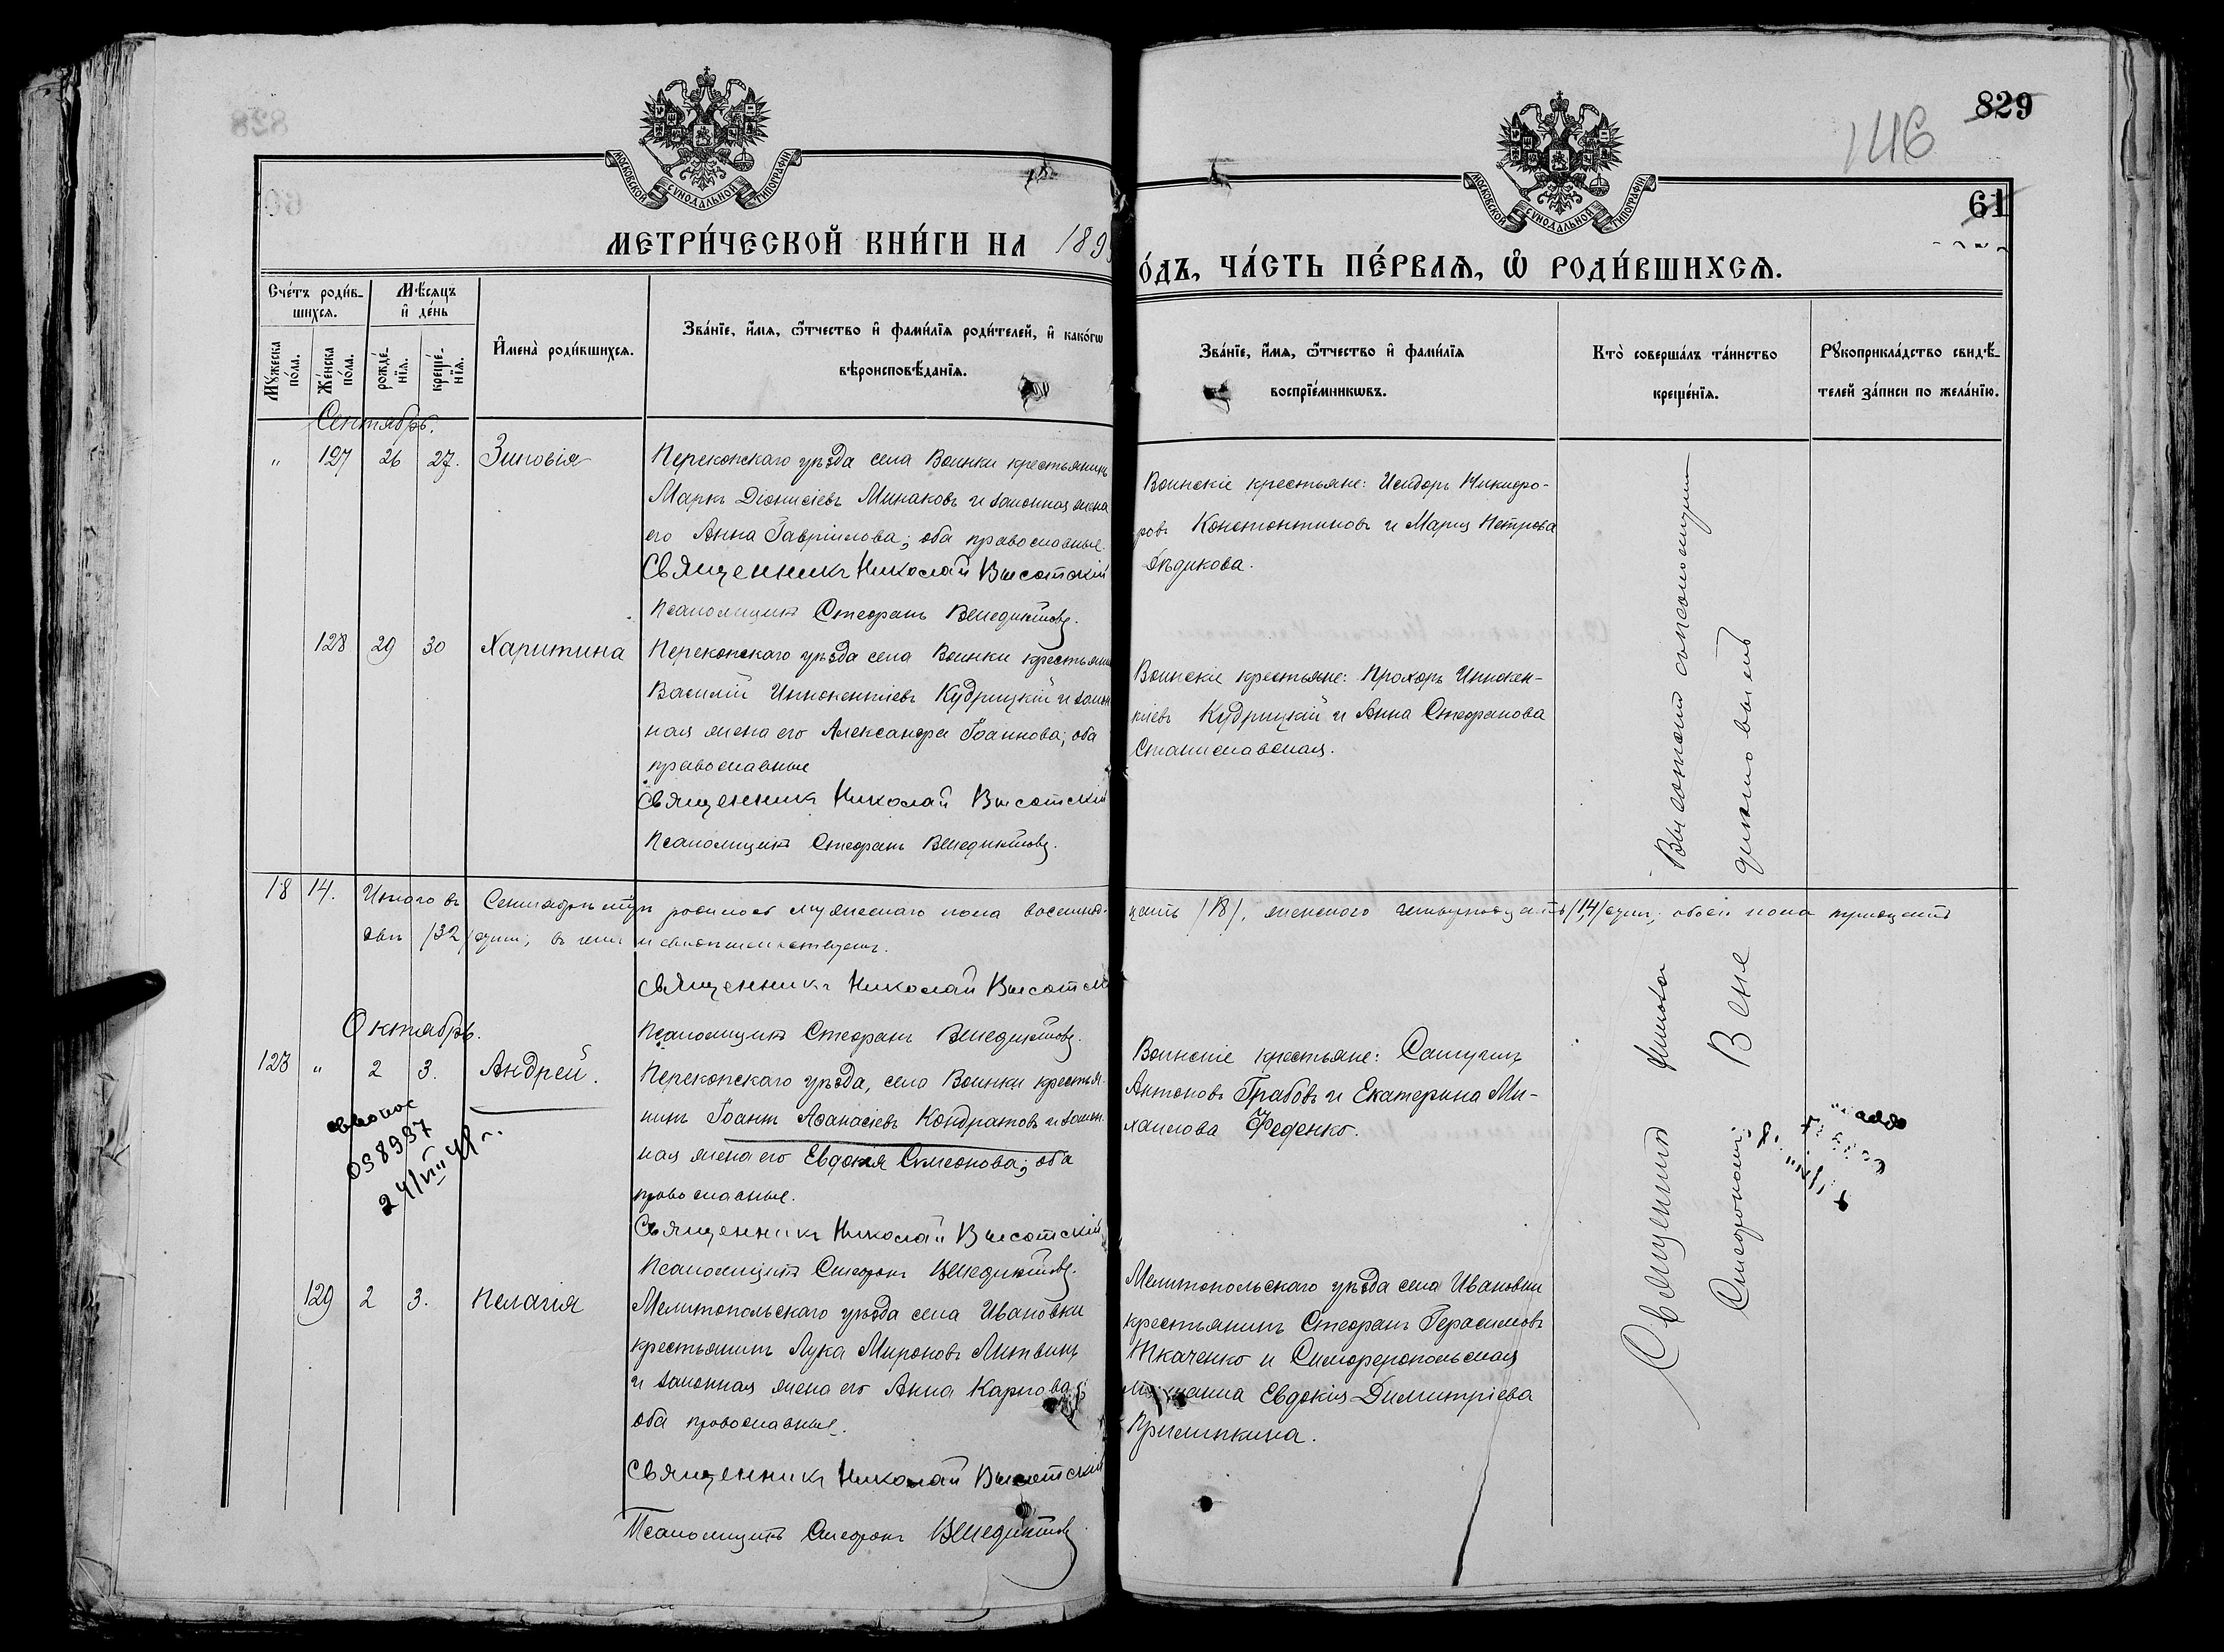 829
146
61
МОСКОВСКОЙ СѴНОДАЛЬНОЙ ТИПОГРАФІИ
МОСКОВСКОЙ СѴНОДАЛЬНОЙ ТИПОГРАФІИ
МЕТРИ́ЧЕСКОЙ КНИ́ГИ НА 189
О́ДЪ, ЧА́СТЬ ПЕ́РВАѦ, Ѽ РОДИ́ВШИХСѦ.
Сче́тъ роди́в-
шихсѧ.
Мѣ́сяцъ
и҆ де́нь
Мꙋ́жеска
по́ла.
Же́нска
по́ла.
рожде́-
нїѧ.
креще́-
нїѧ.
И҆мена̀ роди́вшихсѧ.
Зва́нїе, и҆́мѧ, ѻ҆́тчество и҆ фами́лїѧ роди́телей, и҆ како́гѡ
вѣроисповѣ́данїѧ.
Зва́нїе, и҆́мѧ, ѻ҆́тчество и҆ фами́лїѧ
воспрїе́мникѡвъ.
Кто̀ соверша́лъ та́инство
креще́нїѧ.
Рꙋкоприкла́дство свидѣ́-
телей за́писи по жела́нїю.
Сентябрь.
" 127 26 27. Зиновія
Перекопскаго уѣзда села Воинки крестьянинъ
Маркъ Діонисіевъ Минаковъ и законная жена
его Анна Гавріилова; оба православные.
Священникъ Николай Высотскій
Псаломщикъ Стефанъ Венедиктовъ.
Воинскіе крестьяне: Исидоръ Никифо-
ровъ Константиновъ и Марія Петрова
Дѣдикова.
128 29 30 Харитина
Перекопскаго уѣзда села Воинки крестьянинъ
Василій Иннокентіевъ Кудрицкій и закон
ная жена его Александра Іоаннова; оба
православные
Священникъ Николай Высотскій
Псаломщикъ Стефанъ Венедиктовъ.
Воинскіе крестьяне: Прохоръ Иннокен-
тіевъ Кудрицкій и Анна Стефанова
Станиславская.
18 14. Итого въ Сентябрѣ родилось мужескаго пола восемнад-
цать /18/, женскаго четырнадцать /14/ душъ; обоего пола тридцать
два /32/ души;
Священникъ Николай Высотскій
Псаломщикъ Стефанъ Венедиктовъ.
Октябрь.
128 " 2 3. Андрей.
Перекопскаго уѣзда, села Воинки крестья-
нинъ Іоаннъ Аѳанасіевъ Кондратовъ и закон-
ная жена его Евдокія Симеонова; оба
православные.
Священникъ Николай Высотскій
Псаломщикъ Стефанъ Венедиктовъ.
Воинскіе крестьяне:
Антоновъ Грабовъ и Екатерина Ми-
хаилова Феденко.
24/VIII 41 г.
129 2 3. Пелагія
Мелитопольскаго уѣзда села Ивановки
крестьянинъ Лука Мироновъ Литвинъ
и законная жена его Анна Карпова;
оба православные.
Священникъ Николай Высотскій
Псаломщикъ Стефанъ Венедиктовъ
Мелитопольскаго уѣзда села Ивановки
крестьянинъ Стефанъ Герасимовъ
Ткаченко и Симферопольская
мѣщанка Евдокія Димитріева
Священникъ Николай Высотскій съ псаломщикомъ
Стефаномъ Венедиктовымъ